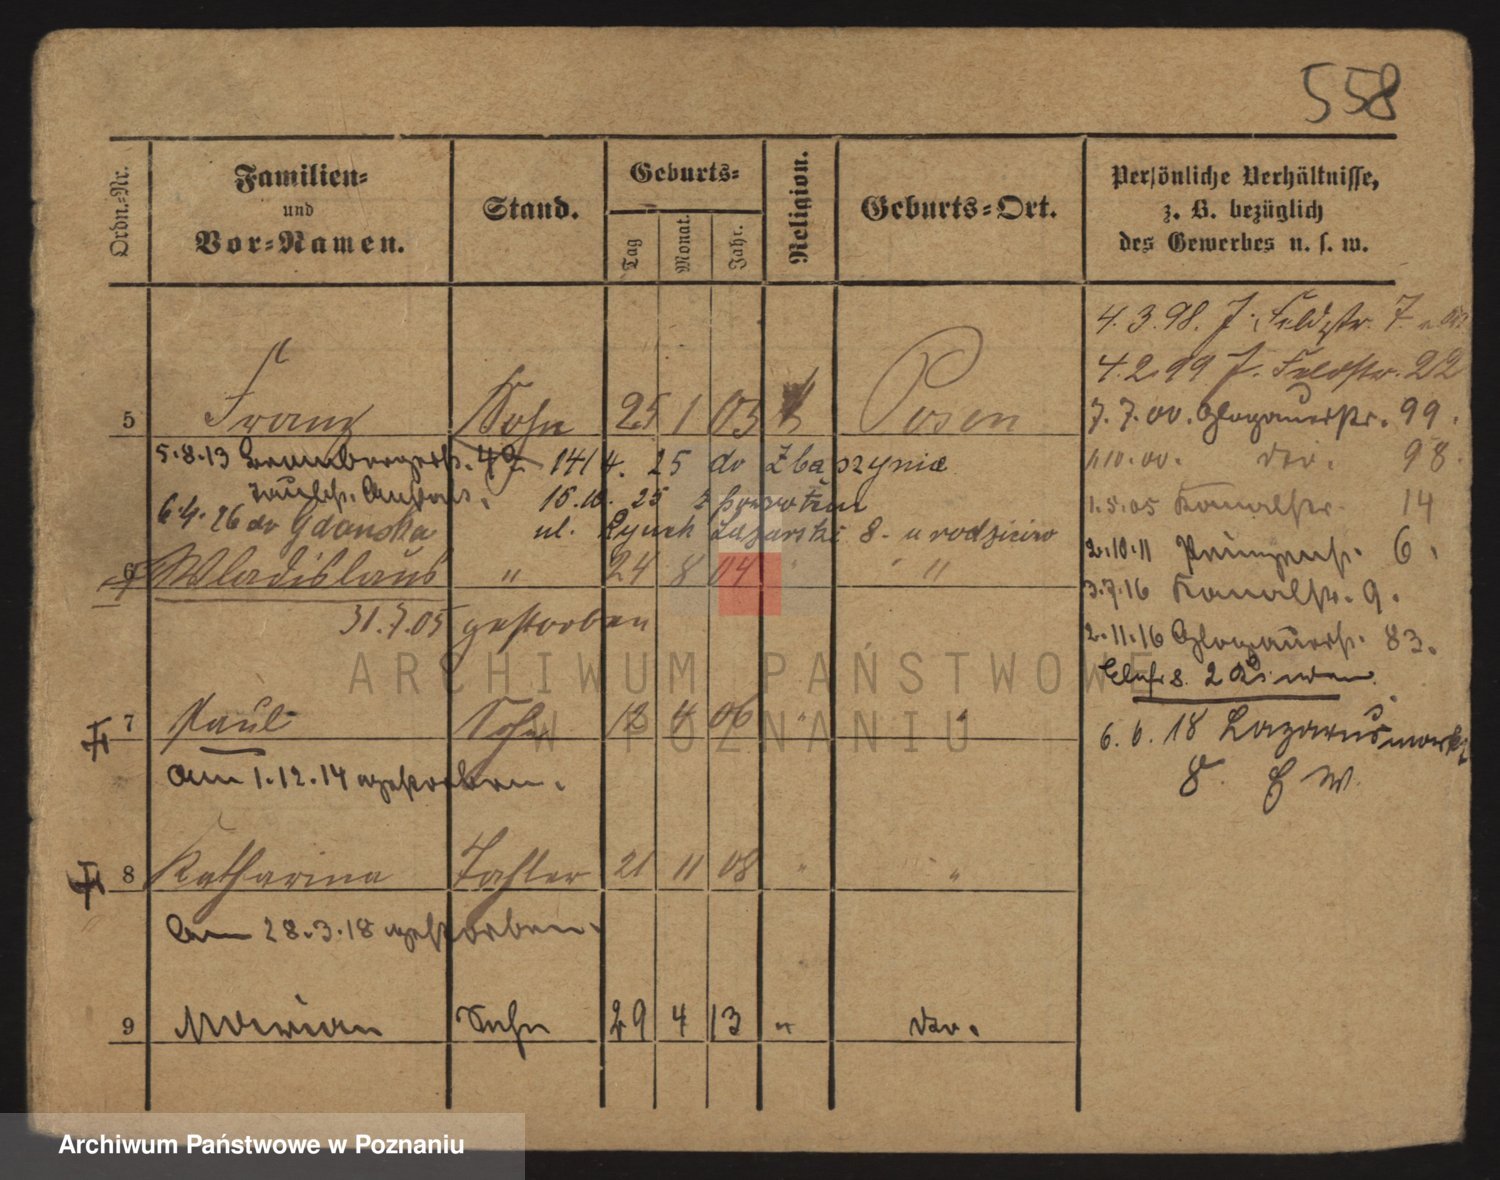 558
Ordn.-Nr.
Familien-
und
Vor-Namen.
Stand.
Geburts-
Tag
Monat.
Jahr.
Religion.
Geburts-Ort.
Persönliche Verhältnisse,
z. B. bezüglich
des Gewerbes u. s. w.
4.3.98. J. Feldstr. 7
4.2.99 J. Feldstr. 22
5 Franz Sohn 25 1 03 k Posen
7.7.00. Glogauerstr. 99.
5.8.13 Brombergerstr. 14/4. 25 do Zbąszynia
1.10.00. do. 98.
15.10. 25 z powrotem
1.5.05 Kanalstr. 14
6.4.26 do Gdańska
ul. Rynek Łazarski 8. u rodziców
2.10.11 Prinzenstr. 6.
6 Wladislaus " 24 8 04 " "
3.7.16 Kanalstr. 9.
31.7.05 gestorben
2.11.16 Glogauerstr. 83.
2 Kinder
7 Paul Sohn 4 06 " "
6.6.18 Lazarusmarkt
8. E W.
Am 1.12.14 gestorben.
8 Katharina Tochter 21 11 08 " "
Am 28.3.18 gestorben.
9 Marian Sohn 29 4 13 " do.
ARCHIWUM PAŃSTWOWE
W POZNANIU
Archiwum Państwowe w Poznaniu